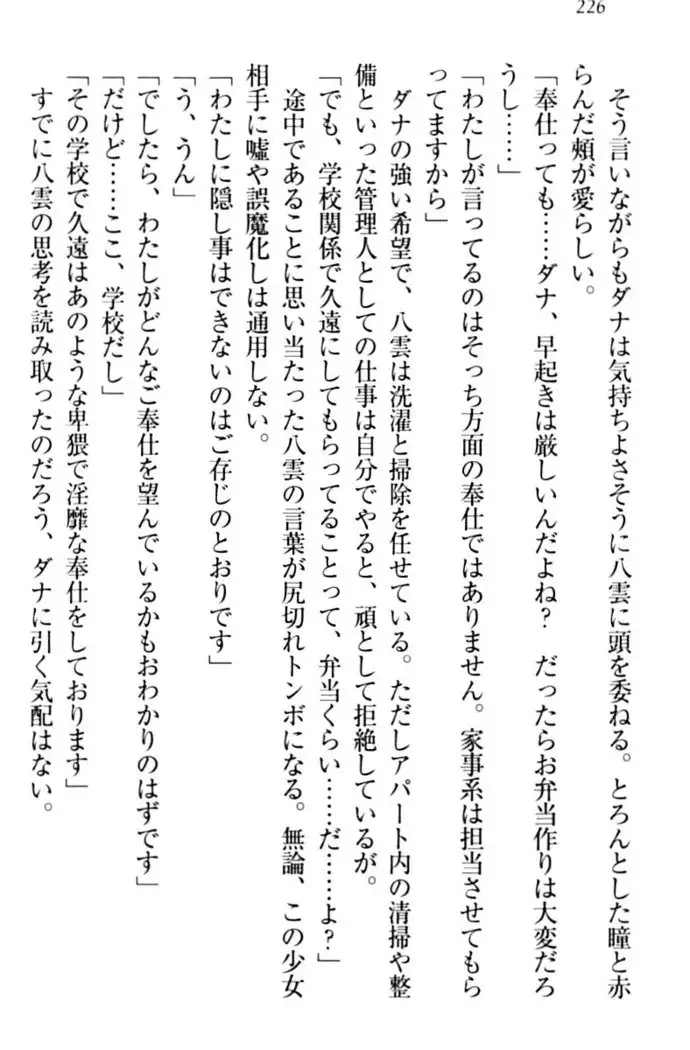 226
そう言いながらもダナは気持ちよさそうに八雲に頭を委ねる。とろんとした瞳と赤
らんだ頬が愛らしい。
「奉仕っても……ダナ、早起きは厳しいんだよね？　だったらお弁当作りは大変だろ
うし……」
「わたしが言ってるのはそっち方面の奉仕ではありません。家事系は担当させてもら
ってますから」
ダナの強い希望で、八雲は洗濯と掃除を任せている。ただしアパート内の清掃や整
備といった管理人としての仕事は自分でやると、頑として拒絶しているが。
「でも、学校関係で久遠にしてもらってることって、弁当くらい……だ……よ？」
途中であることに思い当たった八雲の言葉が尻切れトンボになる。無論、この少女
相手に嘘や誤魔化しは通用しない。
「わたしに隠し事はできないのはご存じのとおりです」
「う、うん」
「でしたら、わたしがどんなご奉仕を望んでいるかもおわかりのはずです」
「だけど……ここ、学校だし」
「その学校で久遠はあのような卑猥で淫靡な奉仕をしております」
すでに八雲の思考を読み取ったのだろう、ダナに引く気配はない。